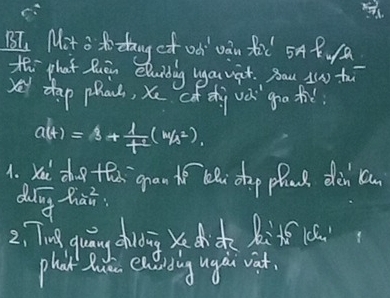 BT1 Một ô tô đang cđ với vận tốc 54 km/h
thì phát hiện chướng ngại vật. Sau 1(s) tài
xế đạp phanh, xe cđ với gia tốc:
a(t) = 3 + 1/t² (m/s²).
1. Xác định thời gian từ khi đạp phanh đến khi
dừng hẳn.
2. Tính quãng đường xe đi đc kể từ khi
phát hiện chướng ngại vật.